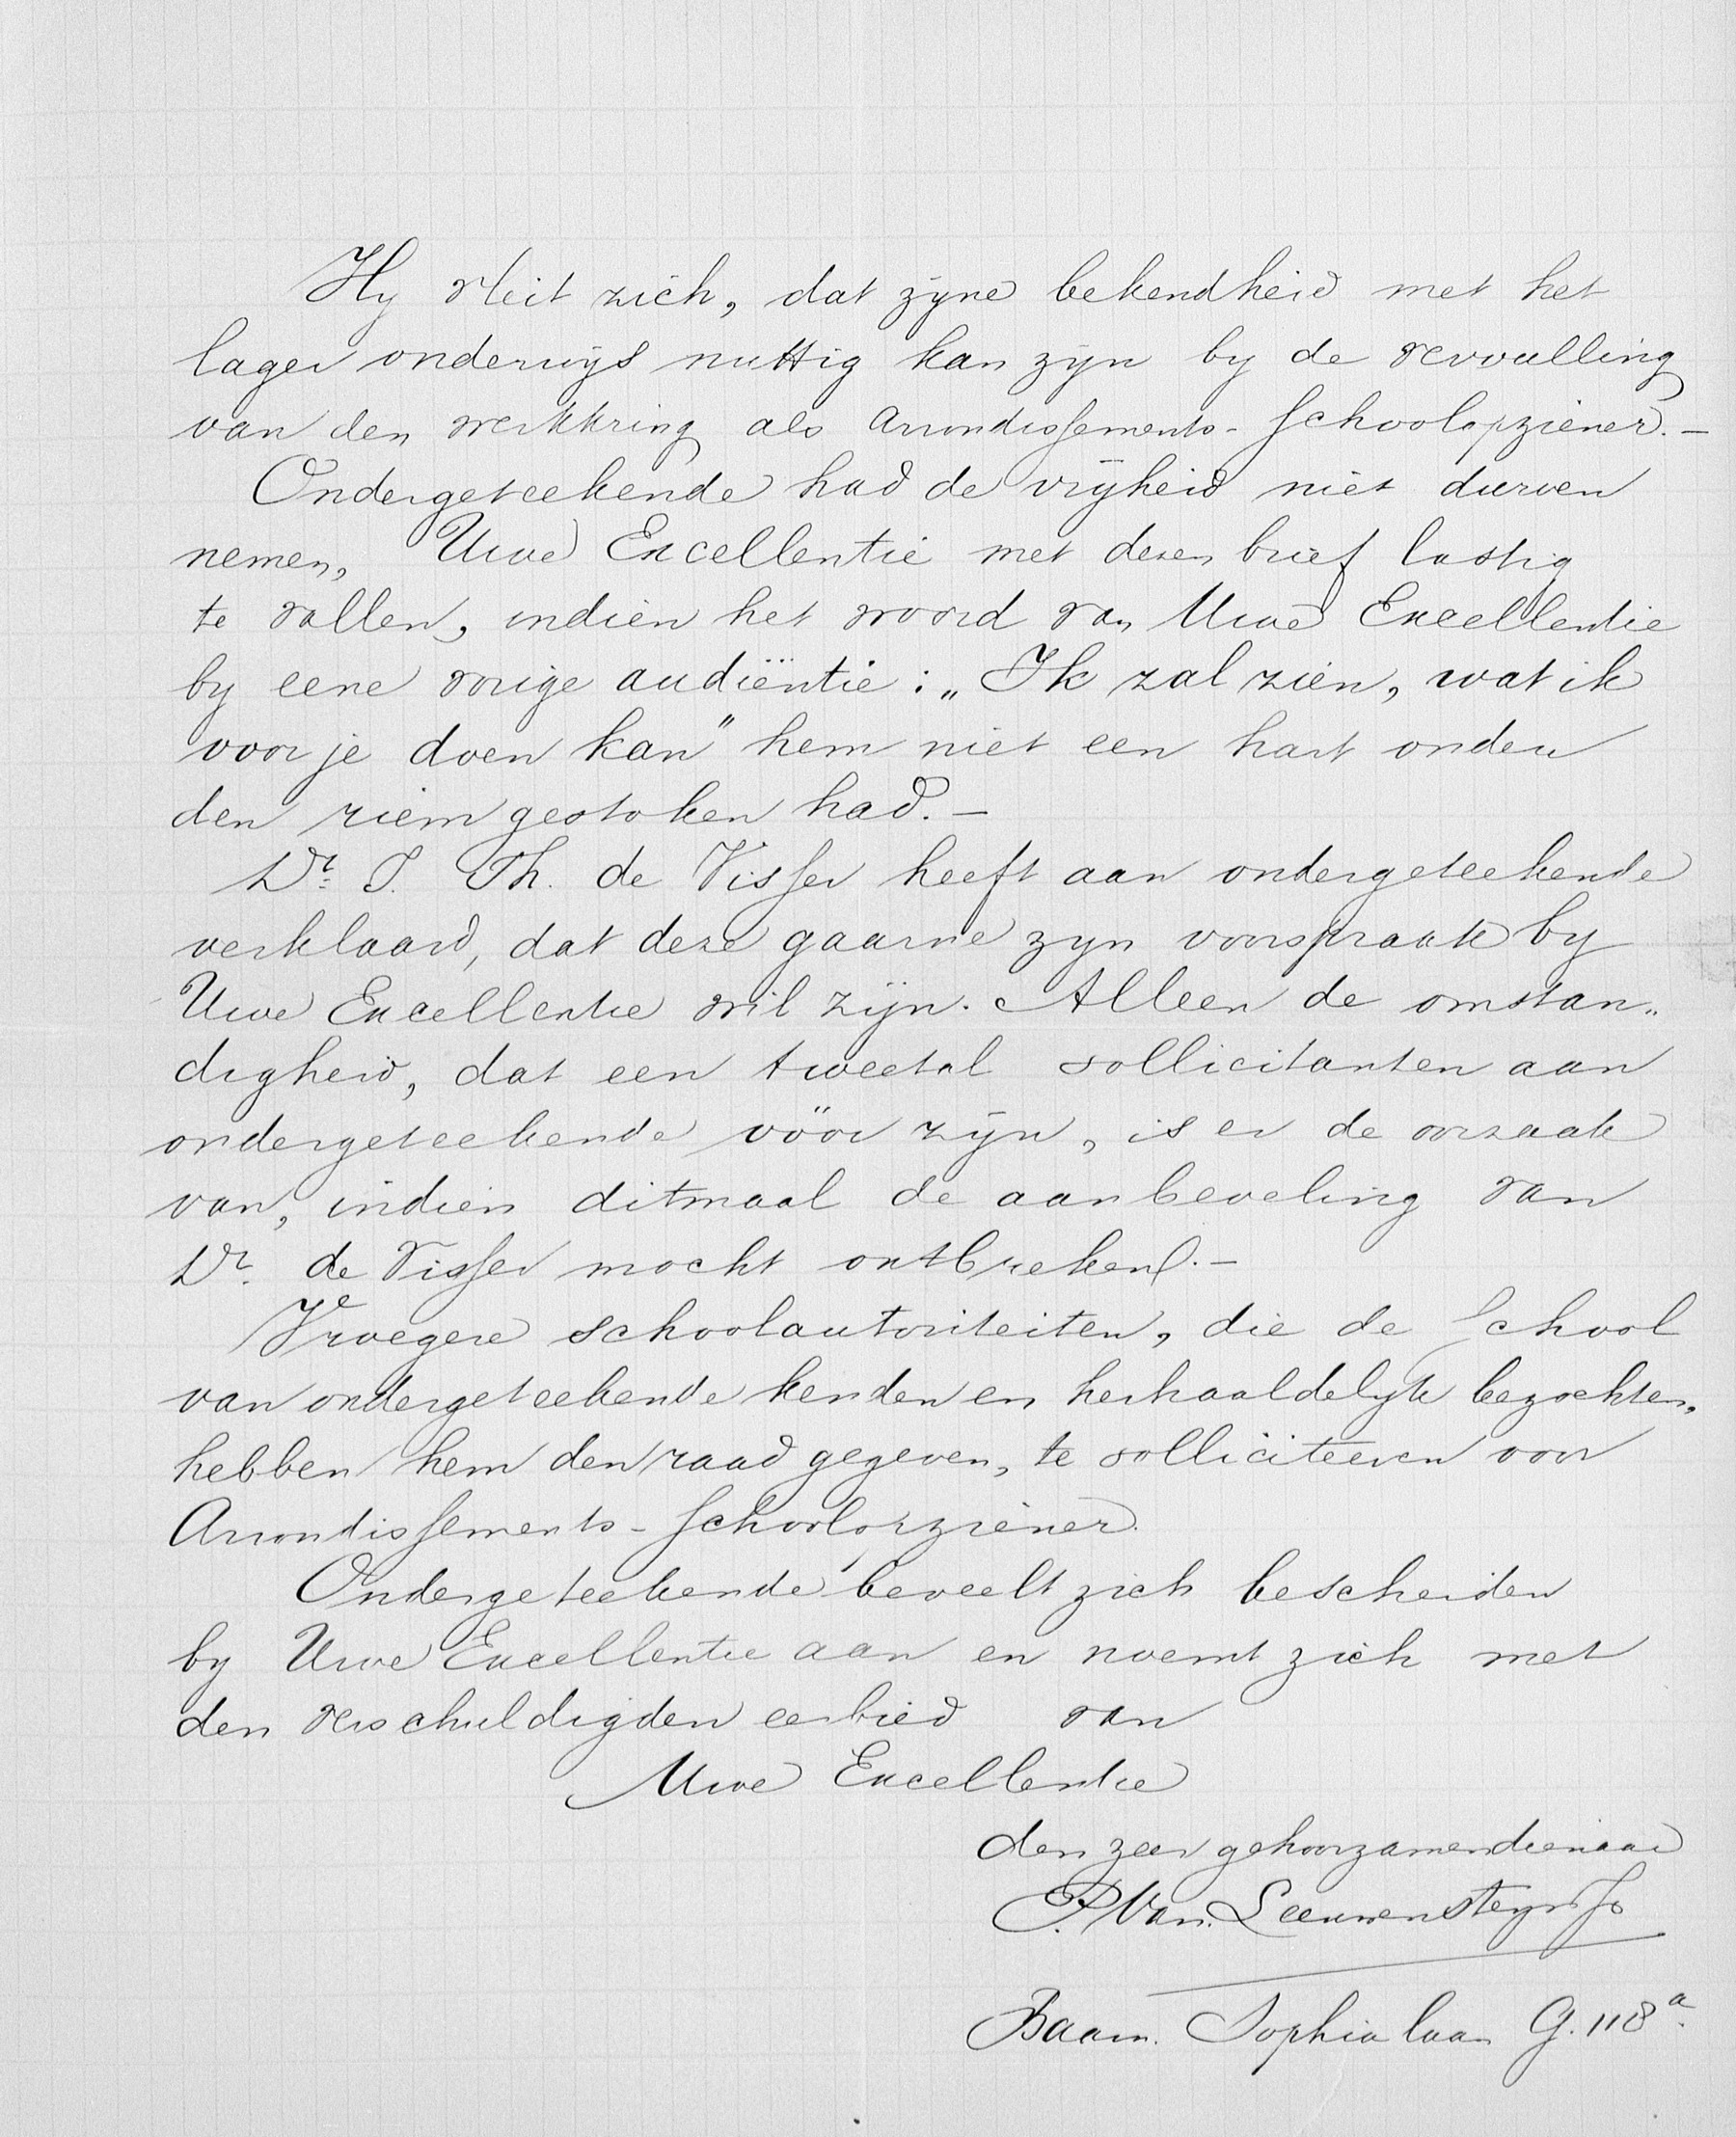 Hy vleit zich, dat zyne bekendheid met het
lager onderwys nuttig kan zyn by de vervulling
van den werkkring als Arrondissements-Schoolopziener.—
Ondergeteekende had de vryheid niet durven
nemen, Uwe Excellentie met dezen brief lastig
te vallen, indien het woord van Uwe Excellentie
by eene vorige audiëntie: „Ik zal zien, wat ik
voor je doen kan" hem niet een hart onder
den riem gestoken had.—
Dr. J. Th. de Visser heeft aan ondergeteekende
verklaard, dat deze gaarne zyn voorspraak by
Uwe Excellentie wil zijn. Alleen de omstan„
digheid, dat een tweetal sollicitanten aan
ondergeteekende vóór zyn, is er de oorzaak
van, indien ditmaal de aanbeveling van
Dr. de Visser mocht ontbreken.—
Vroegere schoolautoriteiten, die de School
van ondergeteekende kenden en herhaaldelyk bezochten,
hebben hem den raad gegeven, te solliciteeren voor
Arrondissements-Schoolopziener.
Ondergeteekende beveelt zich bescheiden
by Uwe Excellentie aan en noemt zich met
den verschuldigden eerbied van
Uwe Excellentie
den zeer gehoorzamen dienaar
P. Van Leeuwensteyn Jr
Baarn. Sophialaan G. 118a.